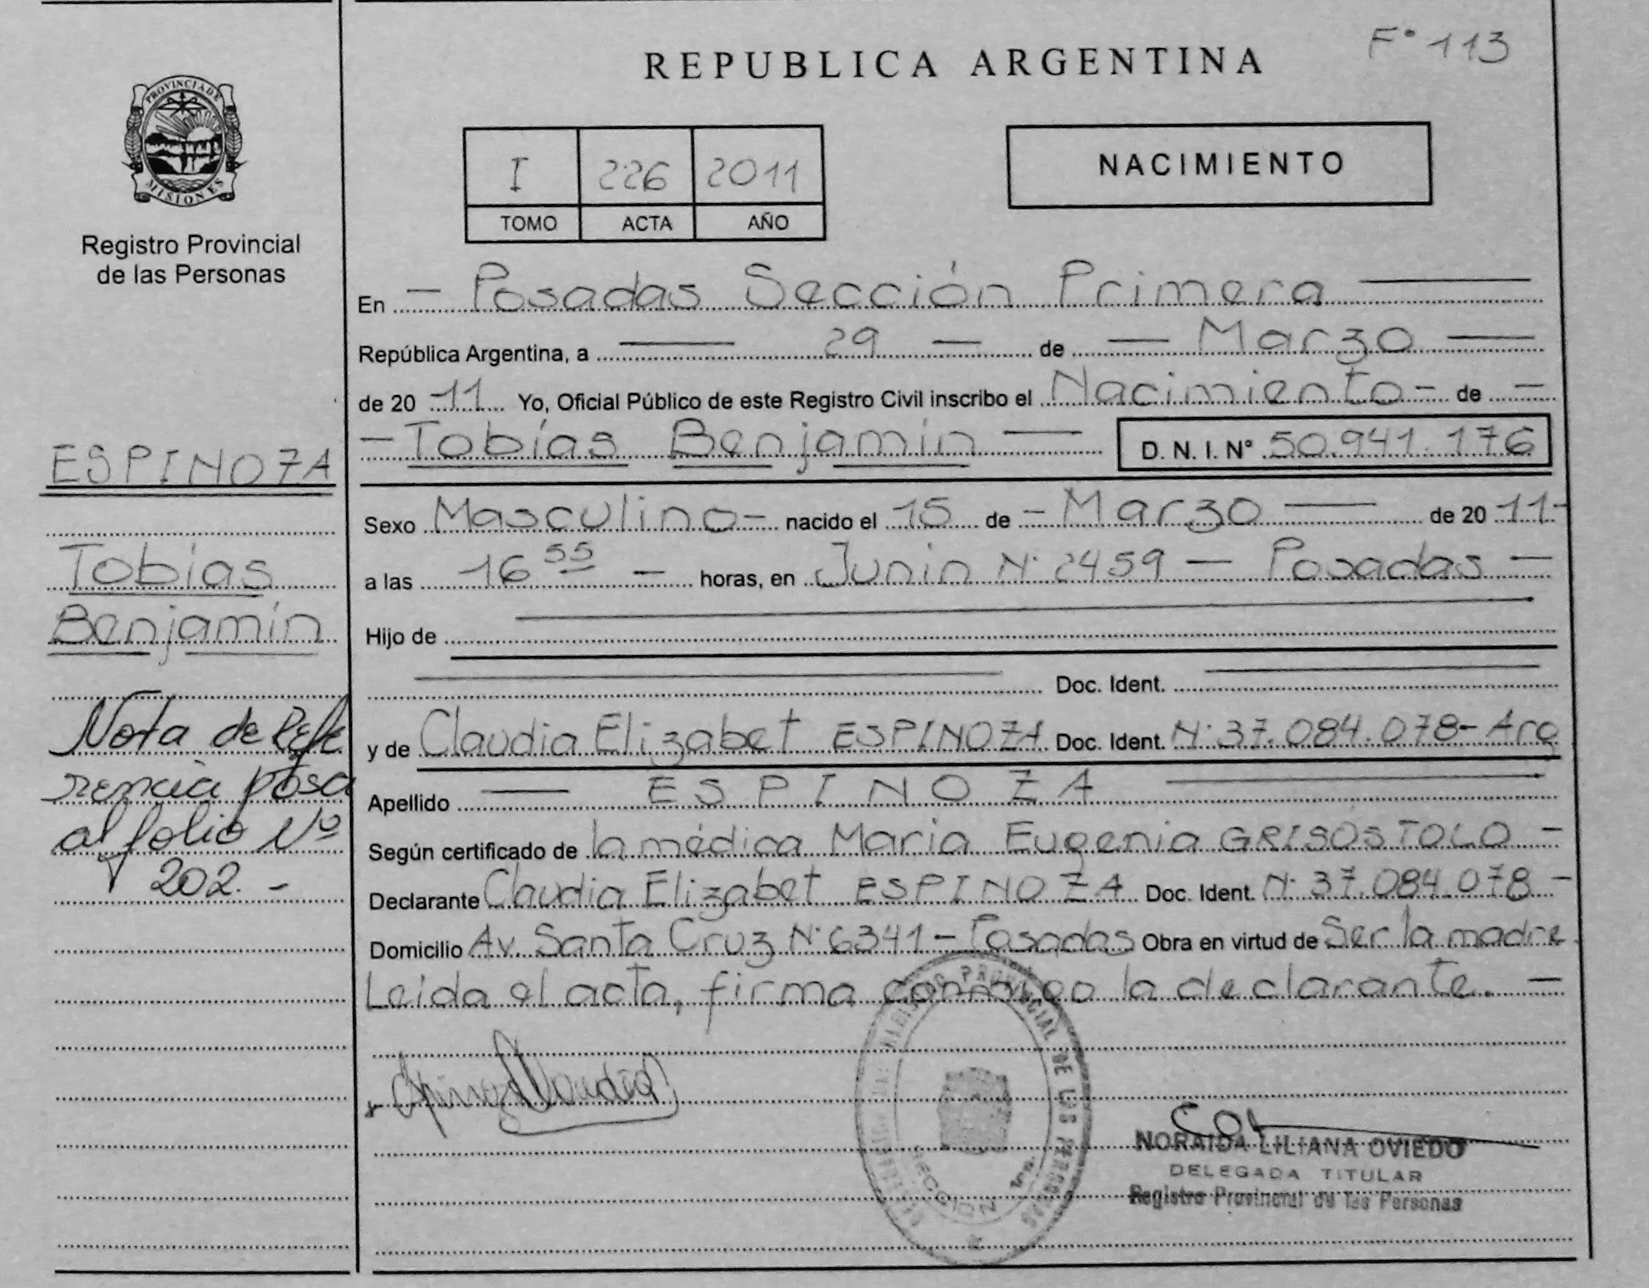 F° 113
REPUBLICA ARGENTINA
PROVINCIA DE
MISIONES
Registro Provincial
de las Personas
I 226 2011
TOMO ACTA AÑO
NACIMIENTO
En — Posadas Sección Primera —
República Argentina, a — 29 — de — Marzo —
de 20 11 Yo, Oficial Público de este Registro Civil inscribo el Nacimiento - de —
— Tobías Benjamín — D. N. I. N° 50.941.176
ESPINOZA
Tobías
Benjamín
Nota de Refe
rencia pasa
al folio Nº
202. -
Sexo Masculino - nacido el 15 de - Marzo — de 20 11 -
a las 16 55 — horas, en Junin N° 2459 — Posadas —
Hijo de —
— Doc. Ident. —
y de Claudia Elizabet ESPINOZA Doc. Ident. N° 37.084.078 - Arg
Apellido — ESPINOZA —
Según certificado de la médica María Eugenia GRISOSTOLO —
Declarante Claudia Elizabet ESPINOZA Doc. Ident. N° 37.084.078 —
Domicilio Av. Santa Cruz N° 6341 - Posadas Obra en virtud de Ser la madre.
Leida el acta, firma conmigo la declarante. —
REGISTRO PROVINCIAL DE LAS PERSONAS
SECCION 1ra.
NORAIDA LILIANA OVIEDO
DELEGADA TITULAR
Registro Provincial de las Personas